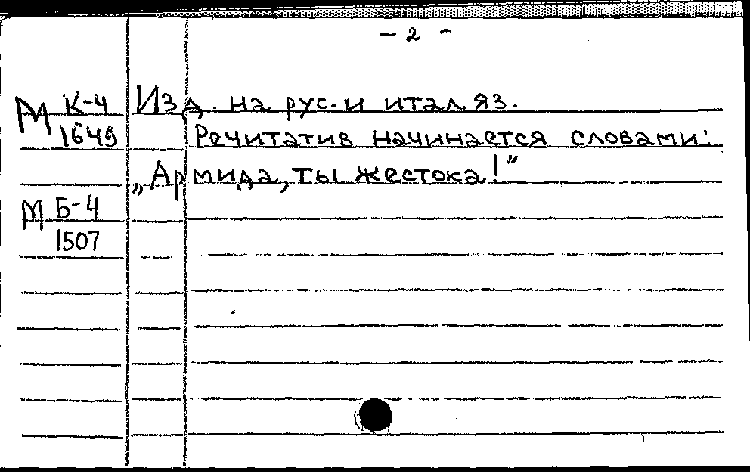 - 2 -
М К-4 Изд. на рус. и итал яз.
1649 Речитатив начинается словами:
„Армида, ты жестока!"
М Б-4
1507